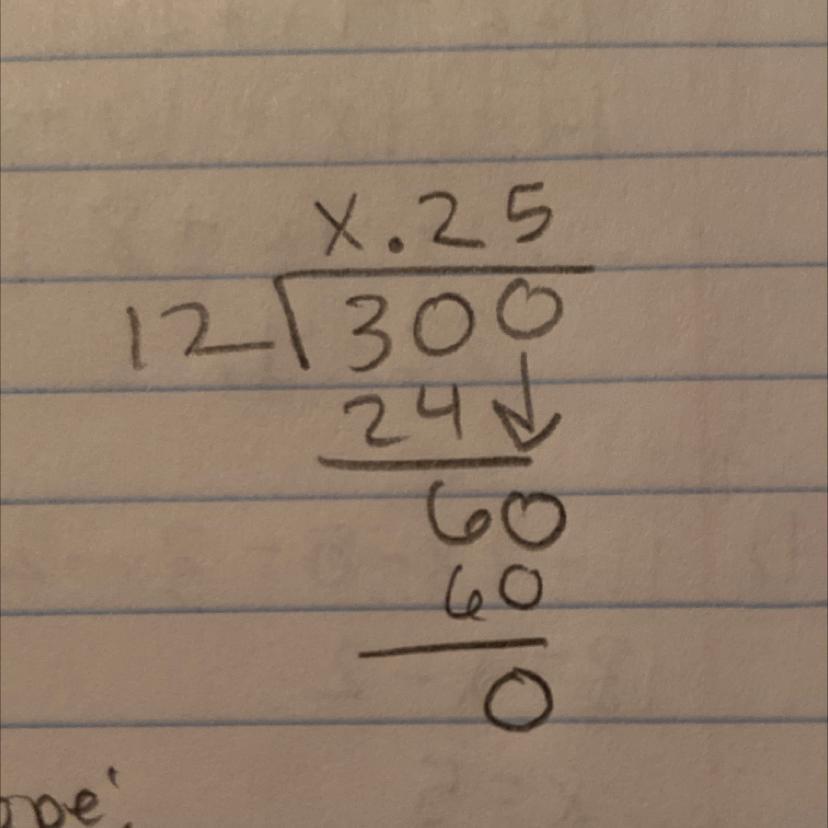 x.25
12 300
24
60
60
0